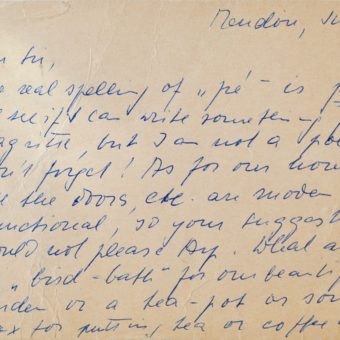 Meudon, Ju
n Sir,
e real spelling of „pé" is p
see if I can write something
agritte, but I am not a po
on't forget! As for our hous
e the doors, etc. are moder
unctional, so your suggest
ould not please Ay. What a
„bird-bath" for our beauti
rden or a tea-pot or so
ax for putting tea or coffee